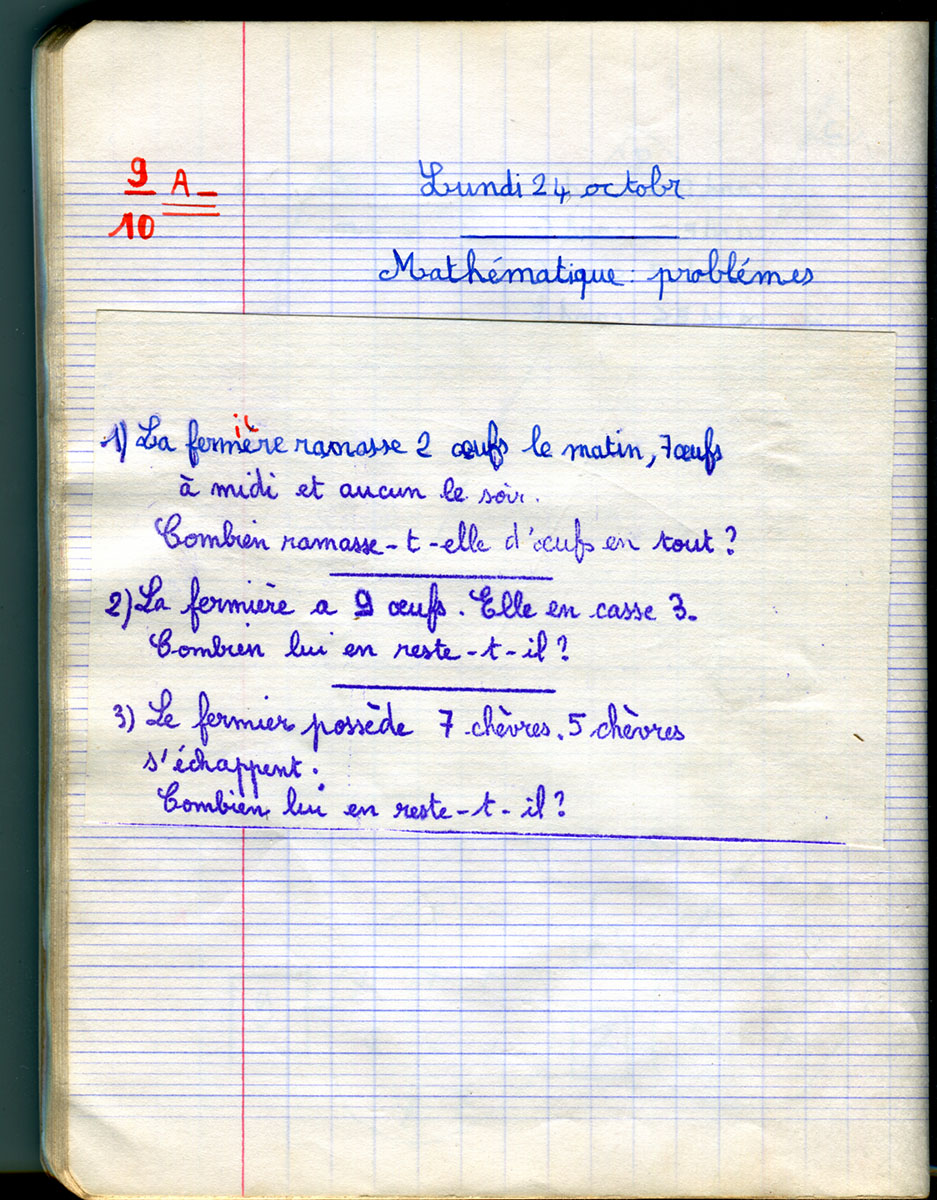 9
10
A-
Lundi 24 octobr
Mathématique : problémes
1) La fermière ramasse 2 œufs le matin, 7 œufs
à midi et aucun le soir.
Combien ramasse-t-elle d'œufs en tout ?
2) La fermière a 9 œufs. Elle en casse 3.
Combien lui en reste-t-il ?
3) Le fermier possède 7 chèvres. 5 chèvres
s'échappent.
Combien lui en reste-t-il ?